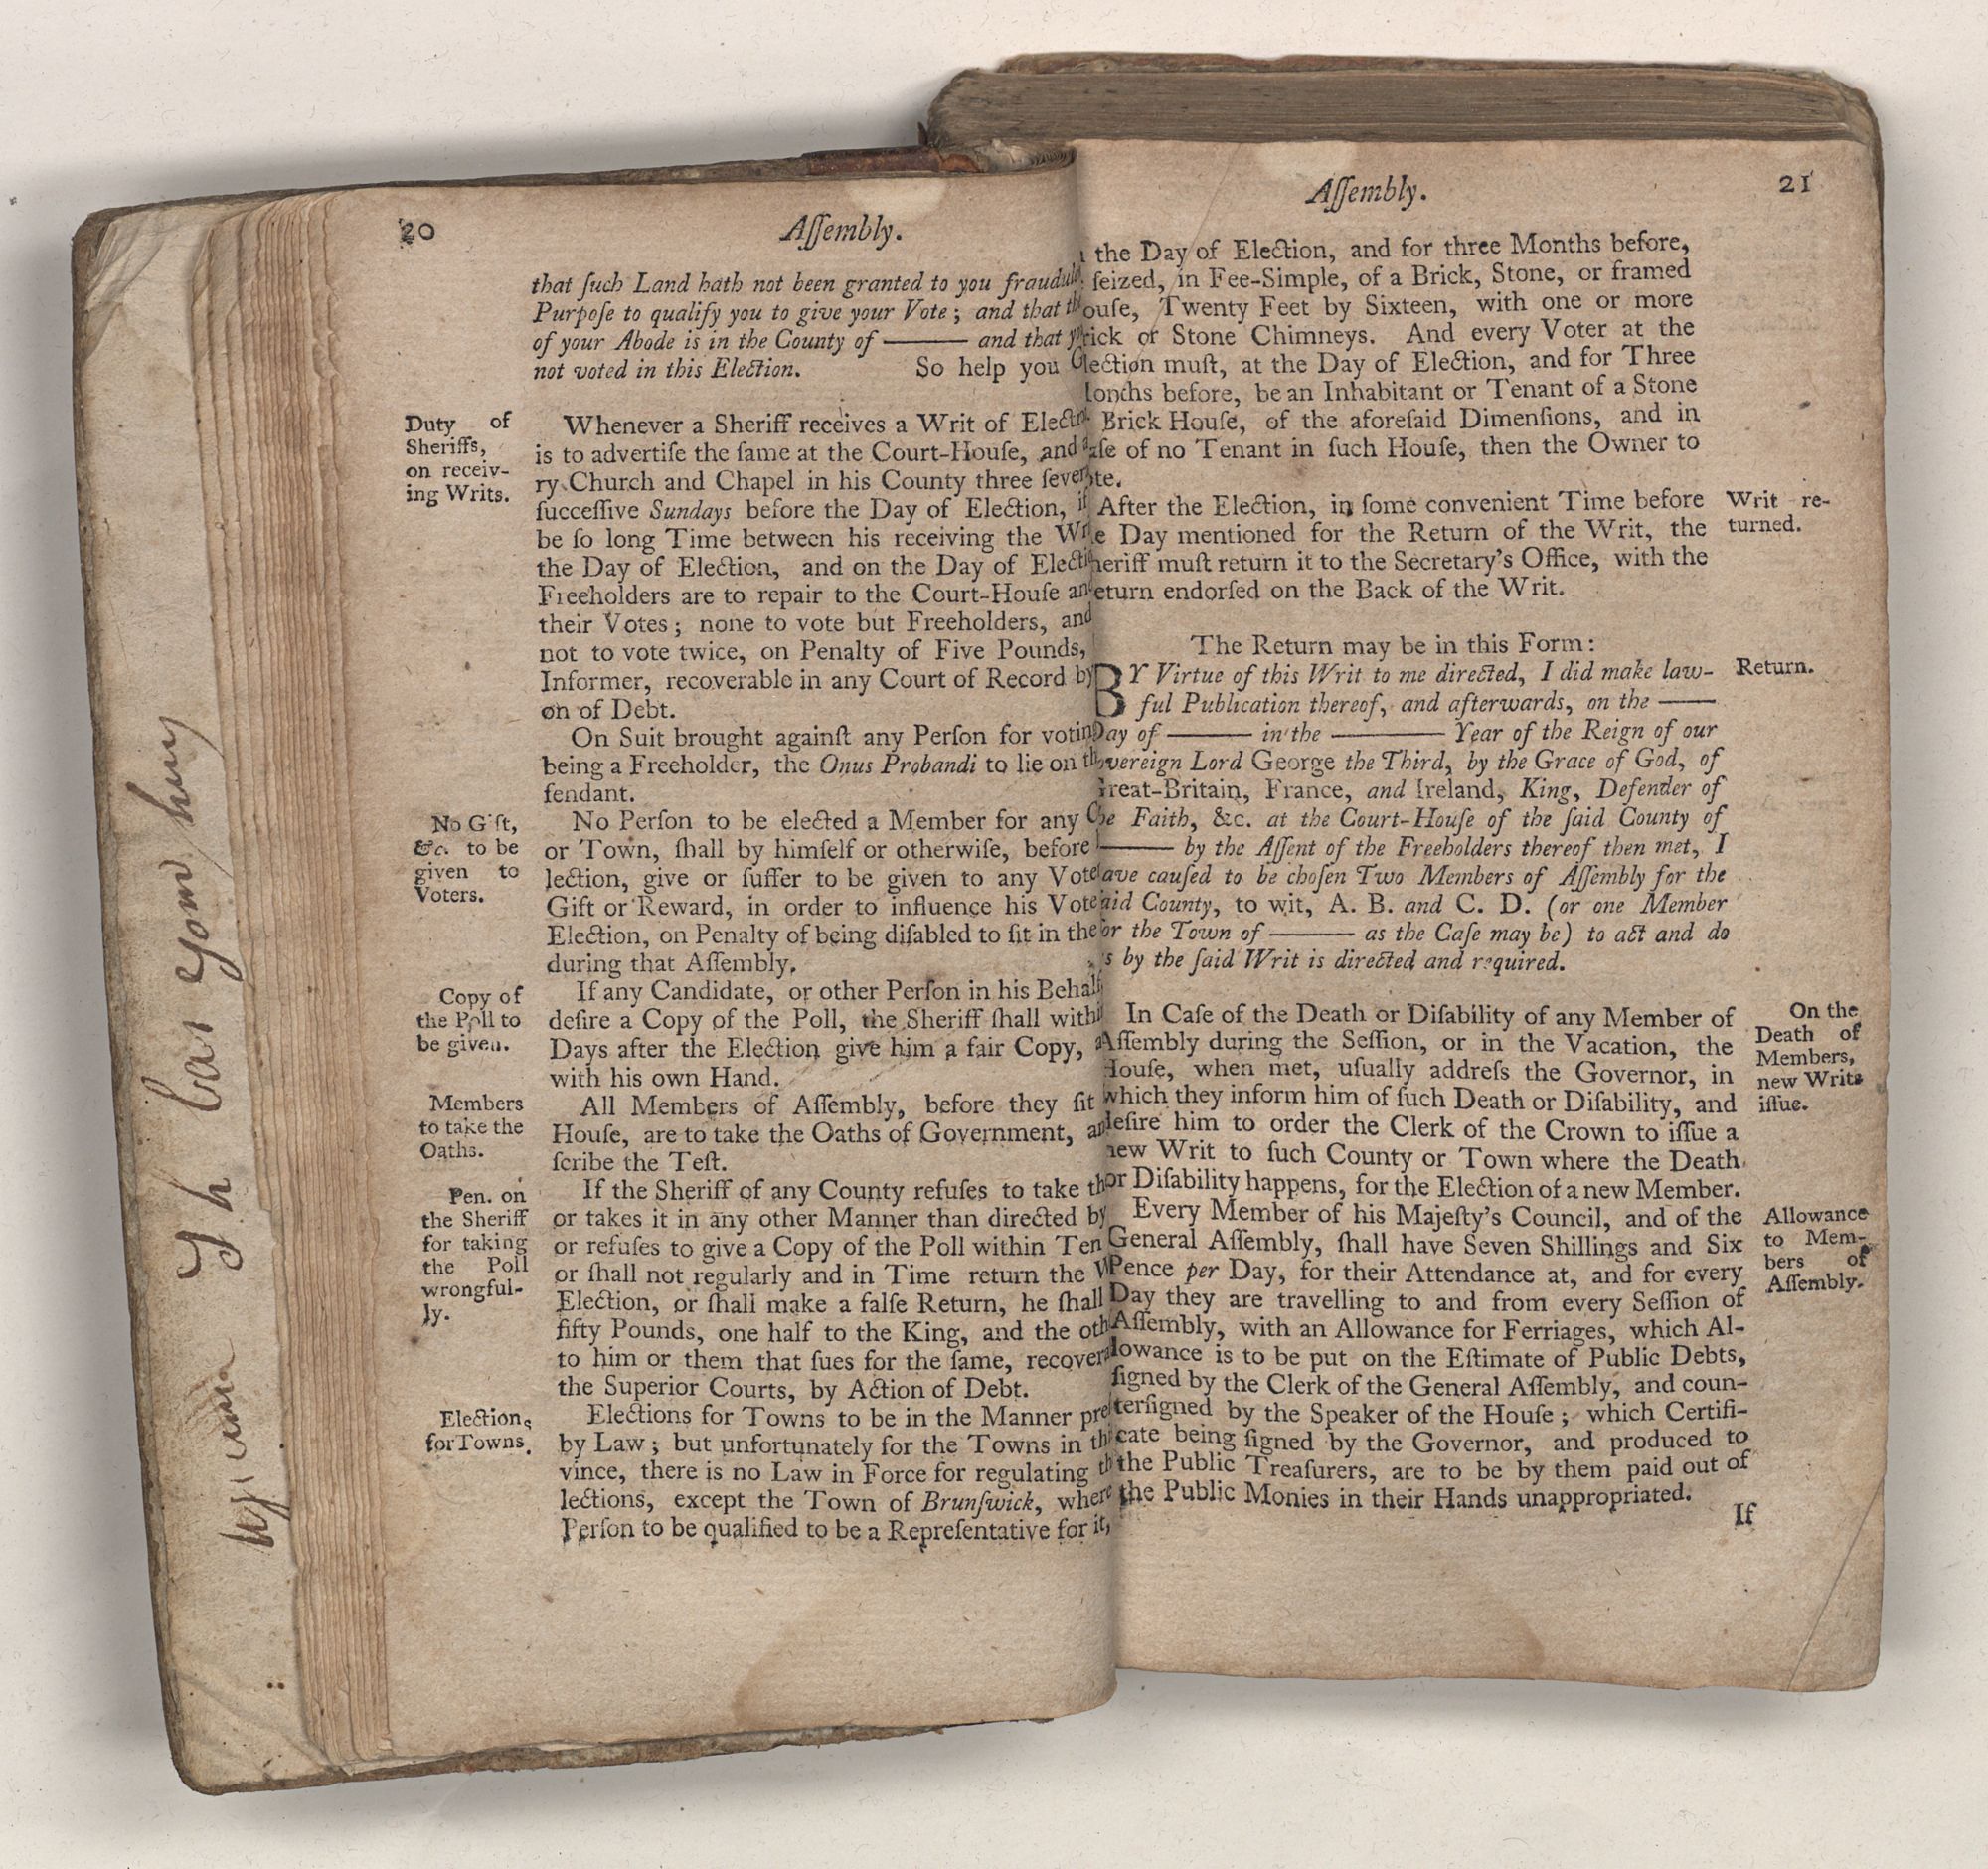 20
Aſſembly.
that ſuch Land hath not been granted to you
Purpoſe to qualify you to give your Vote; and that
of your Abode is in the County of ——— and that
not voted in this Election. So help you
Duty of
Sheriffs,
on receiv-
ing Writs.
Whenever a Sheriff receives a Writ of
is to advertiſe the ſame at the Court-Houſe, and
ry Church and Chapel in his County three
ſucceſſive Sundays before the Day of Election, if
be ſo long Time between his receiving the
the Day of Election, and on the Day of
Freeholders are to repair to the Court-Houſe
their Votes; none to vote but Freeholders, and
not to vote twice, on Penalty of Five Pounds,
Informer, recoverable in any Court of Record by
on of Debt.
On Suit brought againſt any Perſon for
being a Freeholder, the Onus Probandi to lie on
fendant.
No Gift,
&c. to be
given to
Voters.
No Perſon to be elected a Member for any
or Town, ſhall by himſelf or otherwiſe, before
lection, give or ſuffer to be given to any
Gift or Reward, in order to influence his Vote
Election, on Penalty of being diſabled to ſit in the
during that Aſſembly.
Copy of
the Poll to
be given.
If any Candidate, or other Perſon in his
deſire a Copy of the Poll, the Sheriff ſhall
Days after the Election give him a fair Copy,
with his own Hand.
Members
to take the
Oaths.
All Members of Aſſembly, before they ſit
Houſe, are to take the Oaths of Government,
ſcribe the Teſt.
Pen. on
the Sheriff
for taking
the Poll
wrongful-
ly.
If the Sheriff of any County refuſes to take
or takes it in any other Manner than directed by
or refuſes to give a Copy of the Poll within Ten
or ſhall not regularly and in Time return the
Election, or ſhall make a falſe Return, he ſhall
fifty Pounds, one half to the King, and the
to him or them that ſues for the ſame,
the Superior Courts, by Action of Debt.
Elections
for Towns.
Elections for Towns to be in the Manner
by Law; but unfortunately for the Towns in
vince, there is no Law in Force for regulating
lections, except the Town of Brunſwick, where
Perſon to be qualified to be a Repreſentative for it,
Aſſembly.
21
the Day of Election, and for three Months before,
ſeized, in Fee-Simple, of a Brick, Stone, or framed
ouſe, Twenty Feet by Sixteen, with one or more
rick or Stone Chimneys. And every Voter at the
lection muſt, at the Day of Election, and for Three
onths before, be an Inhabitant or Tenant of a Stone
Brick Houſe, of the aforeſaid Dimenſions, and in
aſe of no Tenant in ſuch Houſe, then the Owner to
te.
After the Election, in ſome convenient Time before
e Day mentioned for the Return of the Writ, the
heriff muſt return it to the Secretary's Office, with the
eturn endorſed on the Back of the Writ.
Writ re-
turned.
The Return may be in this Form:
BY Virtue of this Writ to me directed, I did make law-
ful Publication thereof, and afterwards, on the ——
Day of ——— in the ——— Year of the Reign of our
vereign Lord George the Third, by the Grace of God, of
Great-Britain, France, and Ireland, King, Defender of
he Faith, &c. at the Court-Houſe of the ſaid County of
——— by the Aſſent of the Freeholders thereof then met, I
ave cauſed to be choſen Two Members of Aſſembly for the
aid County, to wit, A. B. and C. D. (or one Member
for the Town of ——— as the Caſe may be) to act and do
s by the ſaid Writ is directed and required.
Return.
In Caſe of the Death or Diſability of any Member of
Aſſembly during the Seſſion, or in the Vacation, the
Houſe, when met, uſually addreſs the Governor, in
which they inform him of ſuch Death or Diſability, and
deſire him to order the Clerk of the Crown to iſſue a
new Writ to ſuch County or Town where the Death
or Diſability happens, for the Election of a new Member.
On the
Death of
Members,
new Writs
iſſue.
Every Member of his Majeſty's Council, and of the
General Aſſembly, ſhall have Seven Shillings and Six
Pence per Day, for their Attendance at, and for every
Day they are travelling to and from every Seſſion of
Aſſembly, with an Allowance for Ferriages, which Al-
lowance is to be put on the Eſtimate of Public Debts,
ſigned by the Clerk of the General Aſſembly, and coun-
terſigned by the Speaker of the Houſe; which Certifi-
cate being ſigned by the Governor, and produced to
the Public Treaſurers, are to be by them paid out of
the Public Monies in their Hands unappropriated.
Allowance
to Mem-
bers of
Aſſembly.
If